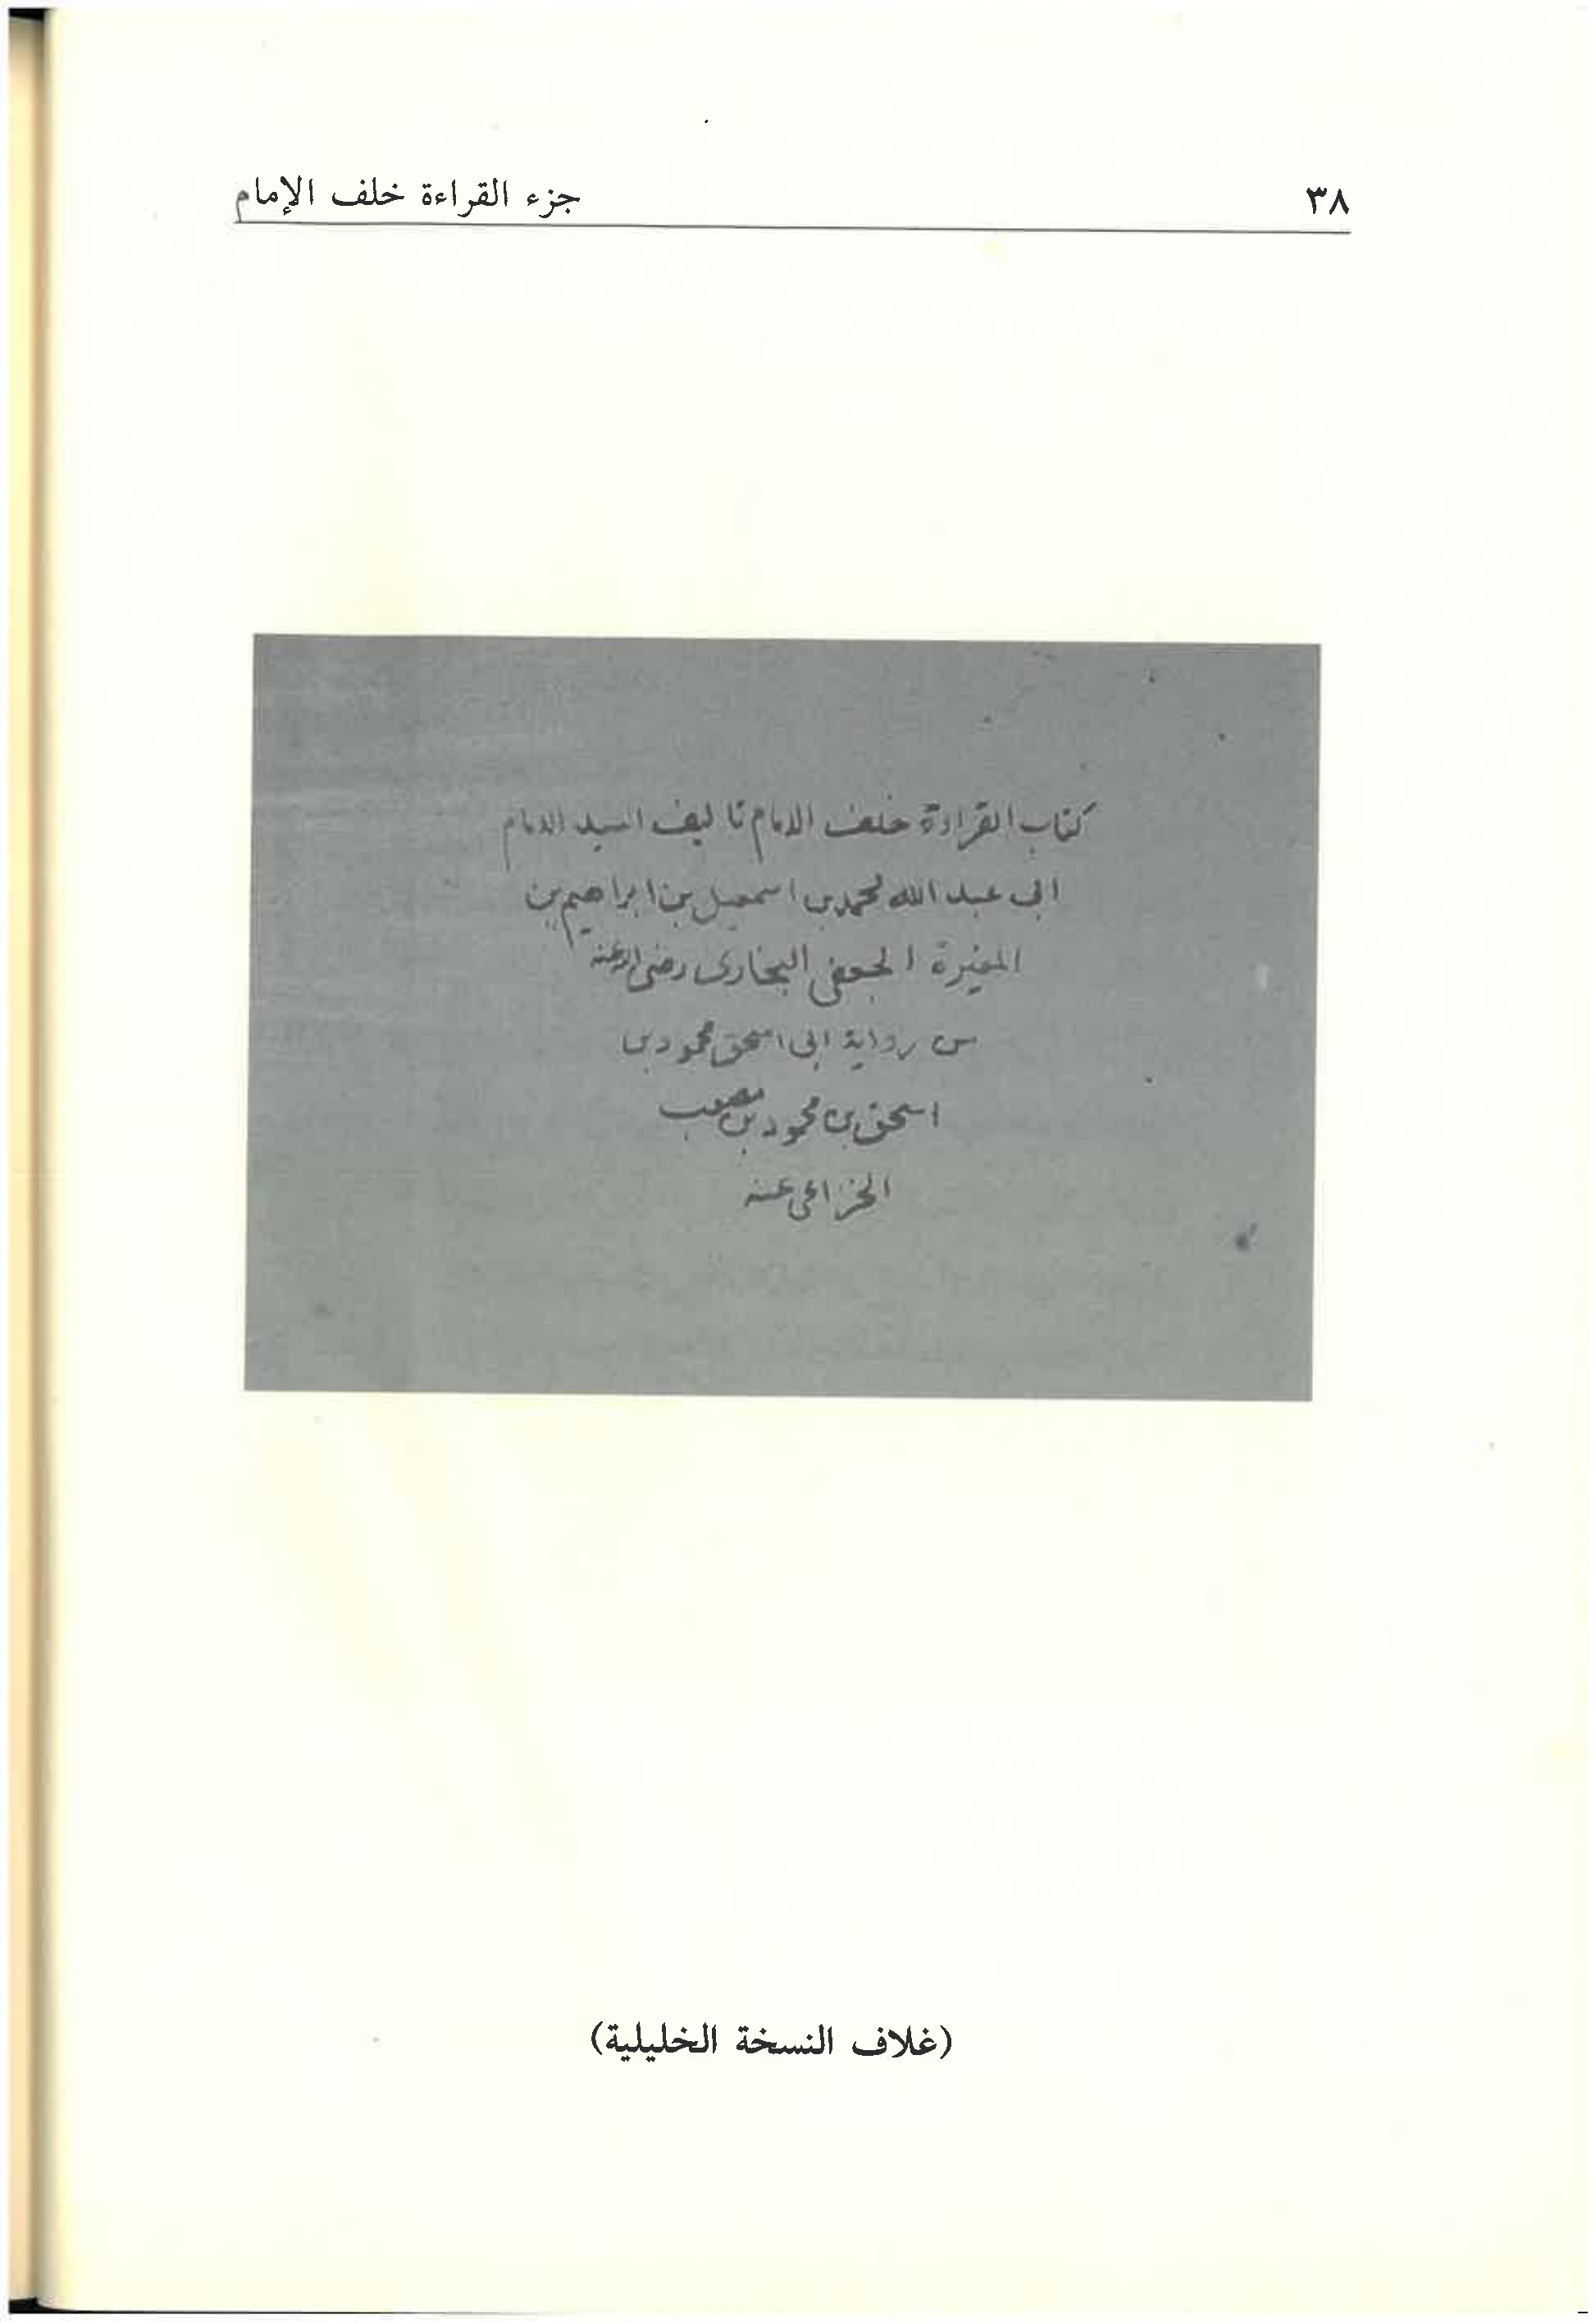 ٣٨
جزء القراءة خلف الإمام
كتاب القراءة خلف الامام تاليف السيد الامام
ابى عبد الله محمد بن اسمعيل بن ابراهيم بن
المغيرة الجعفى البخارى رضى الله عنه
من رواية ابى اسحق محمود بن
اسحق بن محمود بن مصعب
الخزاعى عنه
(غلاف النسخة الخليلية)